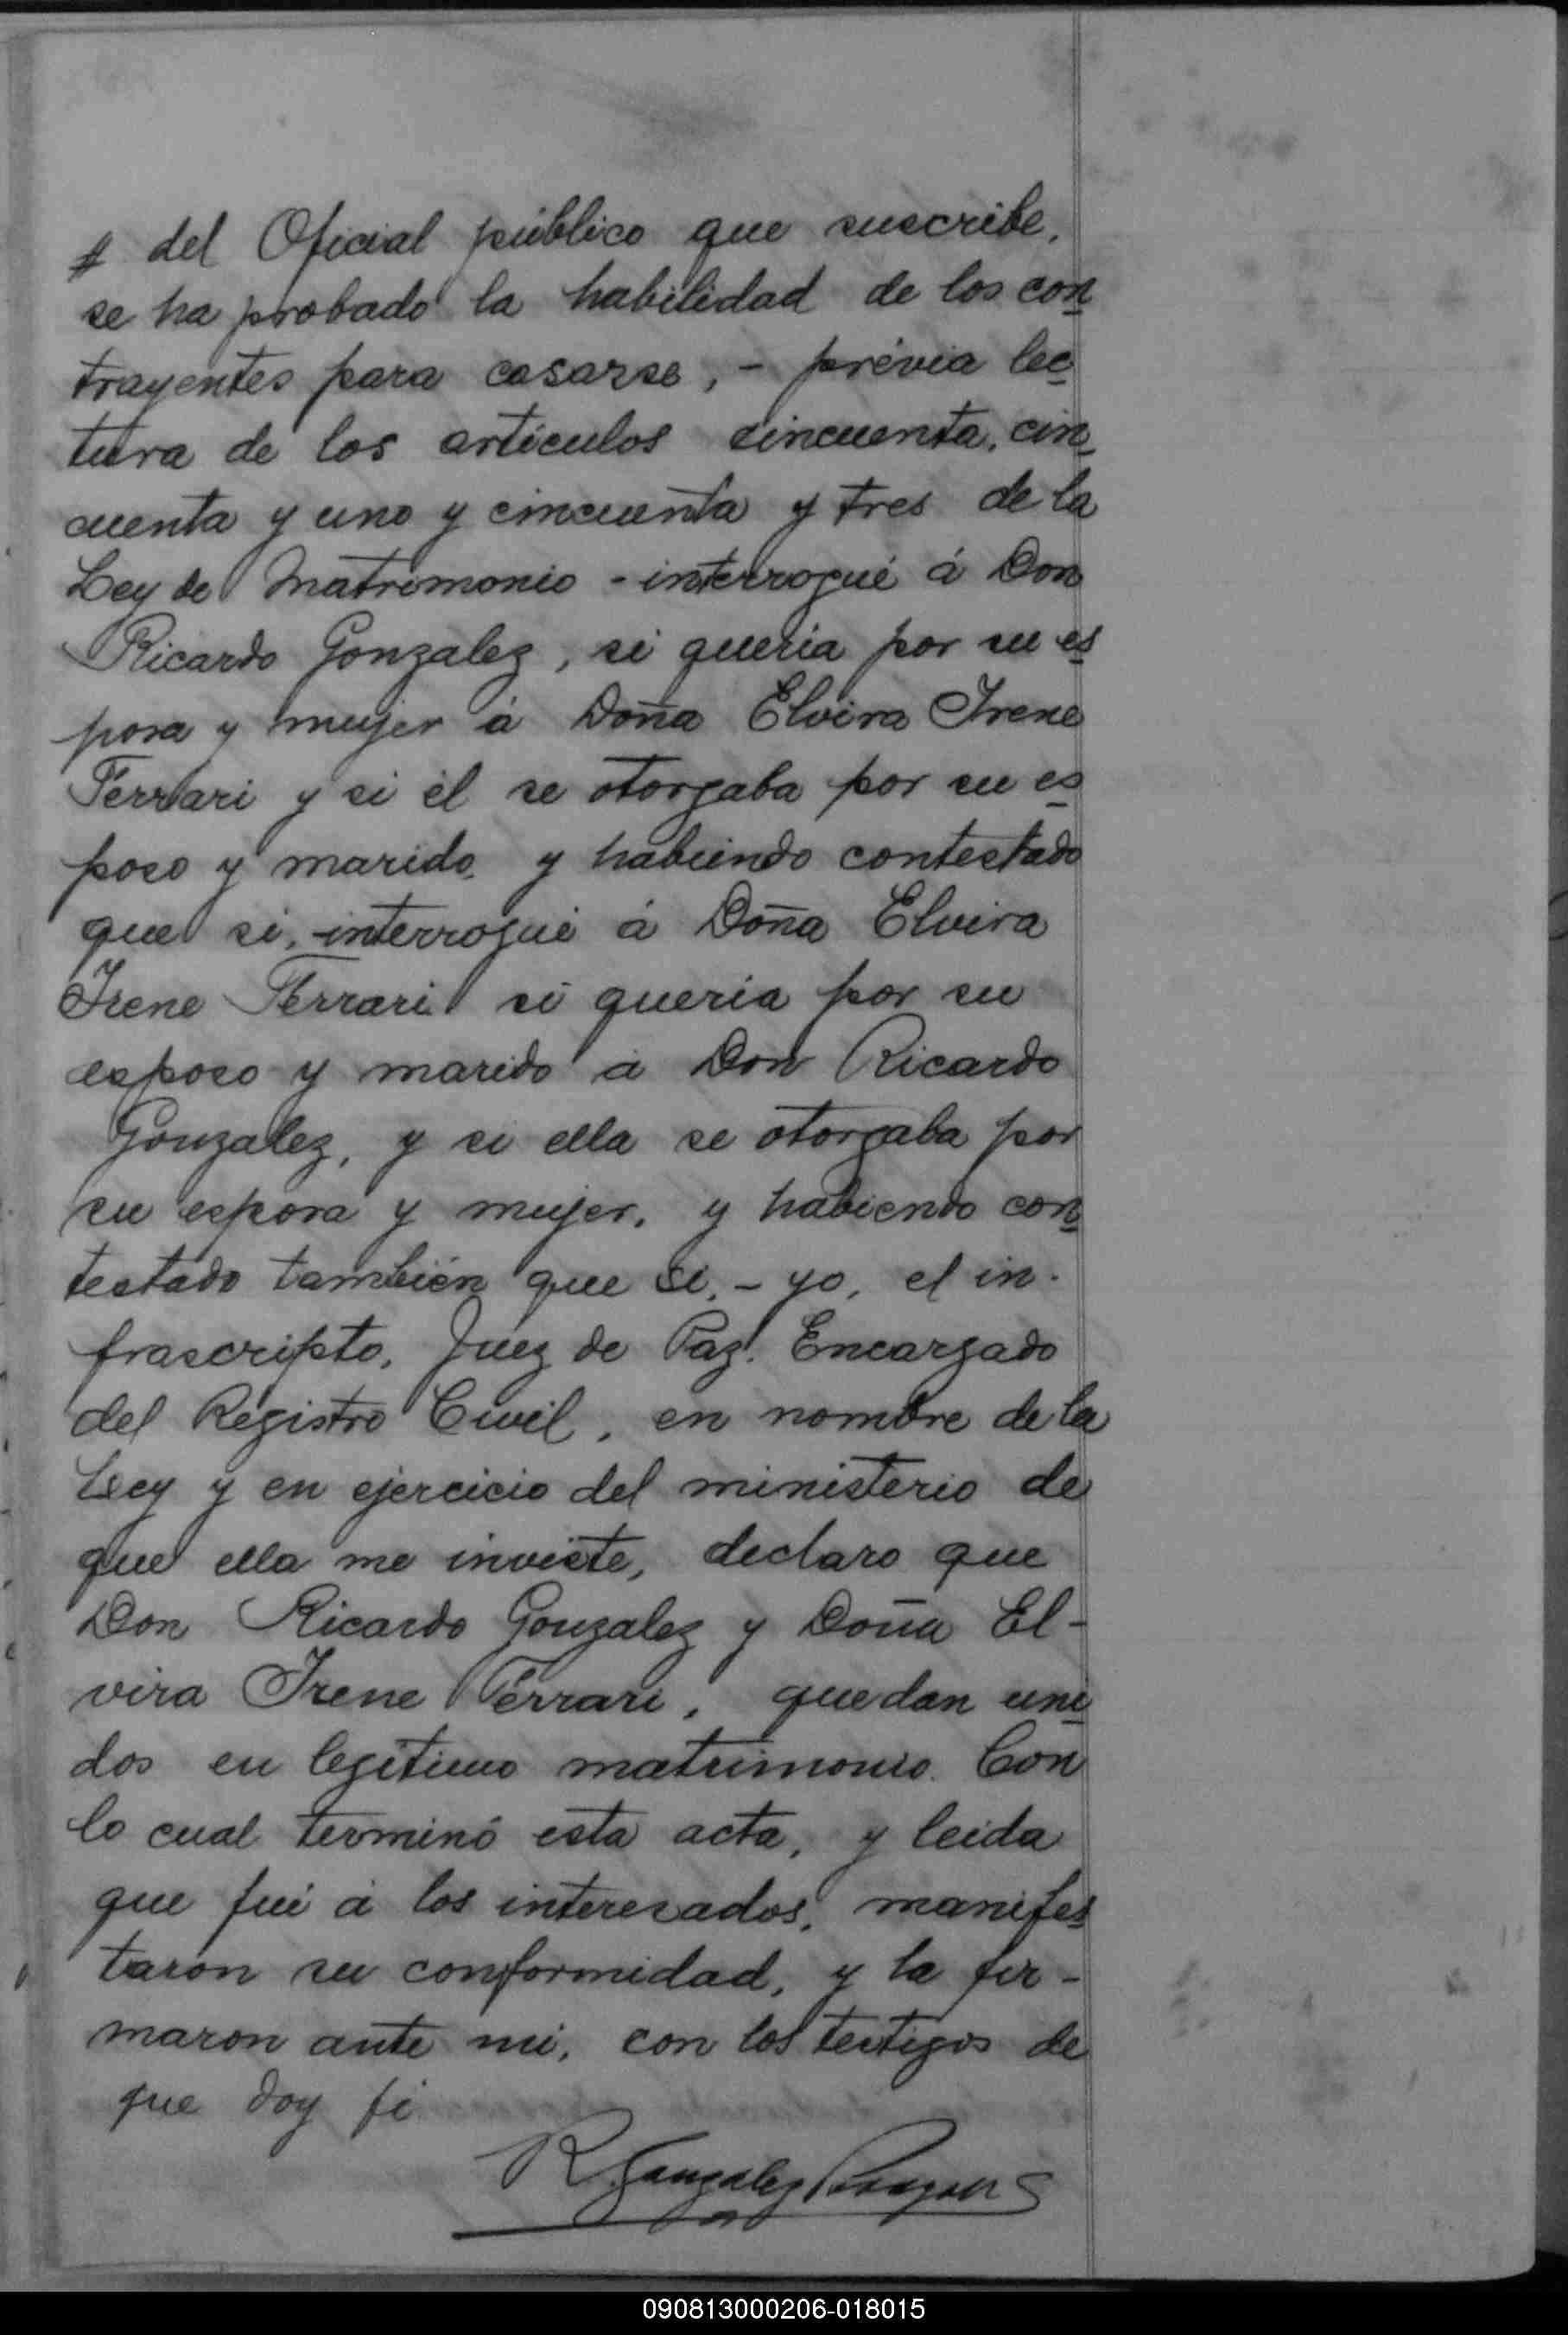 # del Oficial público que suscribe,
se ha probado la habilidad de los con
trayentes para casarse, - prévia lec
tura de los artículos cincuenta, cin
cuenta y uno y cincuenta y tres de la
Ley de Matrimonio - interrogué á Don
Ricardo Gonzalez, si queria por su es
posa y mujer á Doña Elvira Irene
Ferrari y si él se otorgaba por su es
poso y marido, y habiendo contestado
que si, - interrogué á Doña Elvira
Irene Ferrari si queria por su
esposo y marido á Don Ricardo
Gonzalez, y si ella se otorgaba por
su esposa y mujer, y habiendo con
testado también que si, - yo, el in-
frascripto, Juez de Paz, Encargado
del Registro Civil, en nombre de la
Ley y en ejercicio del ministerio de
que ella me inviste, declaro que
Don Ricardo Gonzalez y Doña El-
vira Irene Ferrari, quedan uni
dos en legítimo matrimonio. Con
lo cual terminó esta acta, y leida
que fué á los interesados, manifes
taron su conformidad, y la fir-
maron ante mi, con los testigos de
que doy fé
R. Gonzalez
090813000206-018015